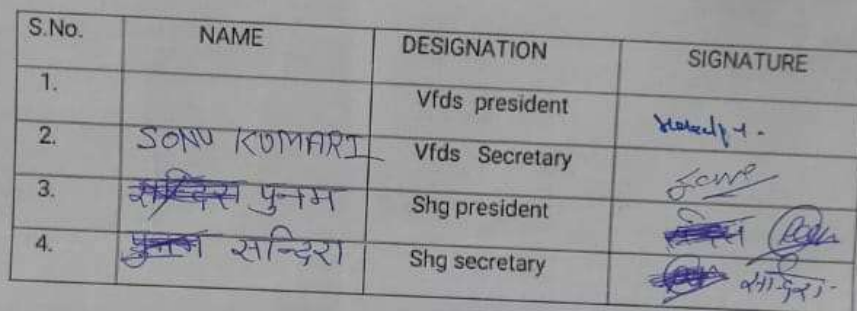 S.No. NAME DESIGNATION SIGNATURE
1. Vfds president
2. SONU KUMARI Vfds Secretary
3. पुनम Shg president
4. सन्दिरा Shg secretary